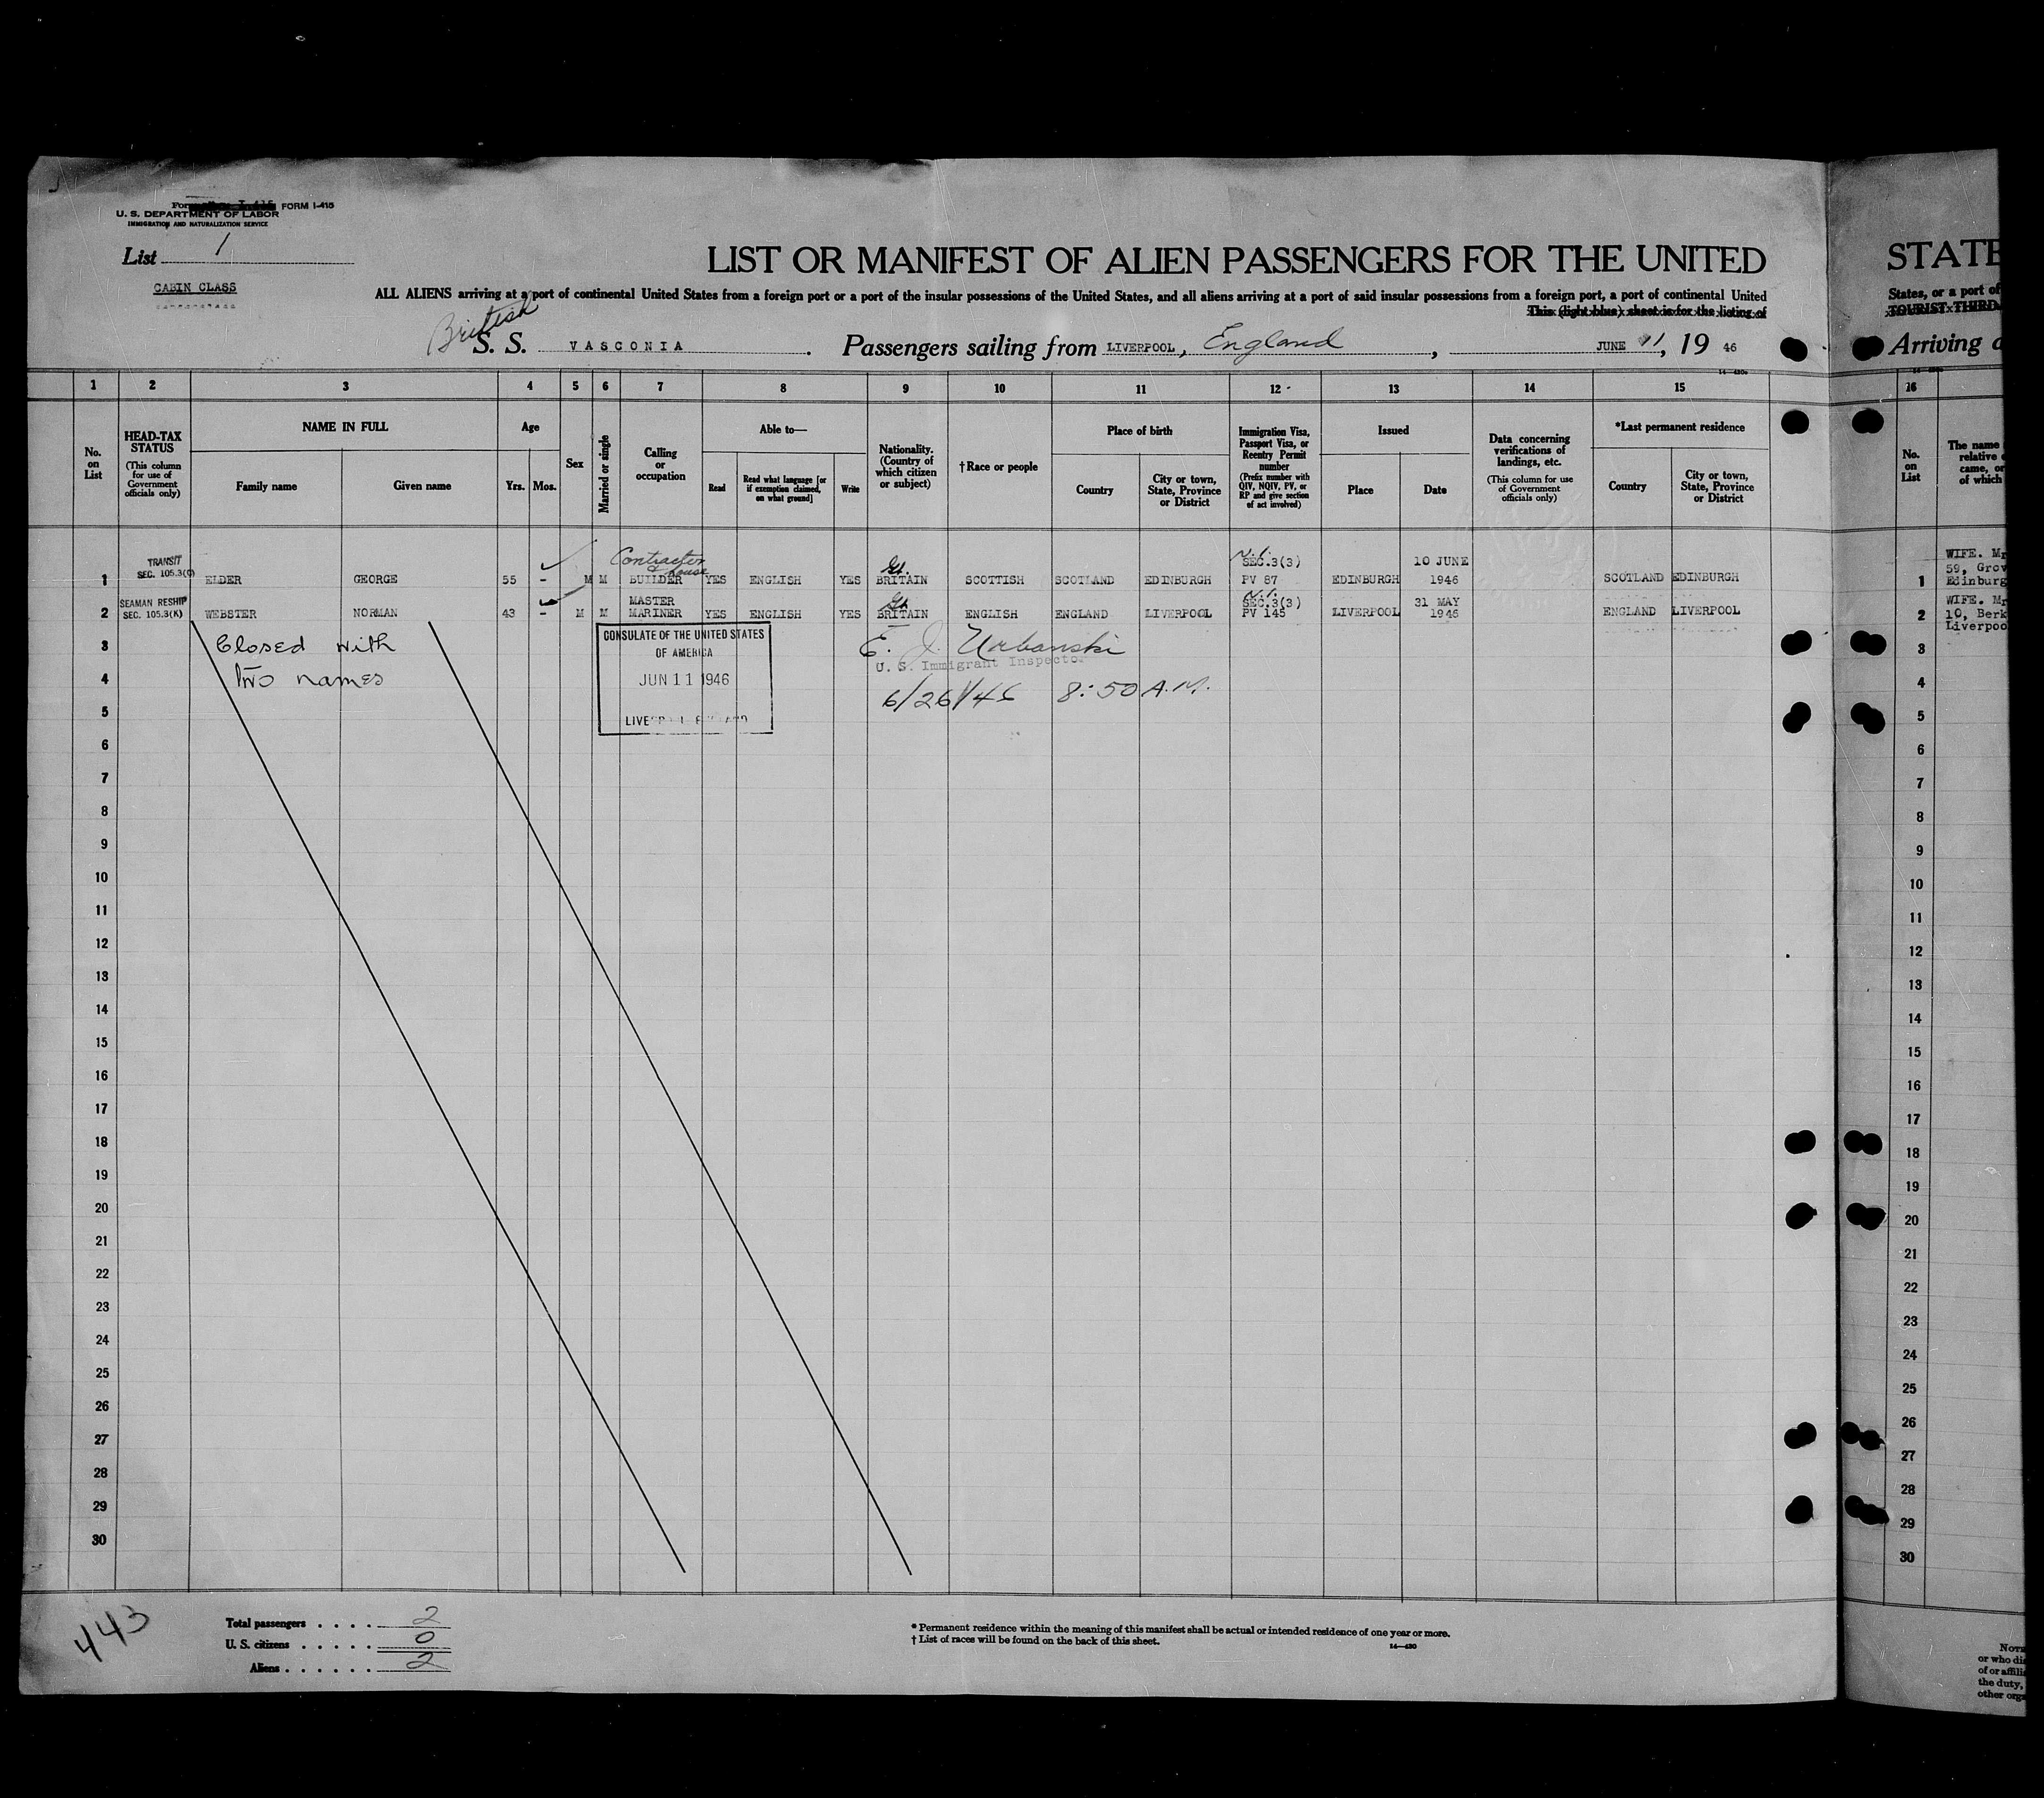 FORM I-415
U. S. DEPARTMENT OF LABOR
IMMIGRATION AND NATURALIZATION SERVICE
List 1
CABIN CLASS
LIST OR MANIFEST OF ALIEN PASSENGERS FOR THE UNITED
ALL ALIENS arriving at a port of continental United States from a foreign port or a port of the insular possessions of the United States, and all aliens arriving at a port of said insular possessions from a foreign port, a port of continental United
This (light blue) sheet is for the listing of
British
S. S. VASCONIA. Passengers sailing from LIVERPOOL, England, JUNE 11, 19 46
1 2 3 4 5 6 7 8 9 10 11 12 13 14 15
No. on List
HEAD-TAX STATUS (This column for use of Government officials only)
NAME IN FULL
Family name Given name
Age
Yrs. Mos.
Sex
Married or single
Calling or occupation
Able to—
Read
Read what language [or if exemption claimed, on what ground]
Write
Nationality. (Country of which citizen or subject)
† Race or people
Place of birth
Country
City or town, State, Province or District
Immigration Visa, Passport Visa, or Reentry Permit number (Prefix number with QIV, NQIV, PV, or RP and give section of act involved)
Issued
Place Date
Data concerning verifications of landings, etc. (This column for use of Government officials only)
*Last permanent residence
Country
City or town, State, Province or District
TRANSIT Contractor Gt. SEC.3(3) 10 JUNE
1 ELDER GEORGE 55 - M M BUILDER YES ENGLISH YES BRITAIN SCOTTISH SCOTLAND EDINBURGH PV 87 EDINBURGH 1946 SCOTLAND EDINBURGH
& house
SEAMAN RESHIP MASTER Gt. SEC.3(3) 31 MAY
2 SEC. 105.3(K) WEBSTER NORMAN 43 - M M MARINER YES ENGLISH YES BRITAIN ENGLISH ENGLAND LIVERPOOL PV 145 LIVERPOOL 1946 ENGLAND LIVERPOOL
3 Closed with
4 two names
CONSULATE OF THE UNITED STATES
OF AMERICA
JUN 11 1946
E. J. Urbanski
U. S. Immigrant Inspector
6/26/46 8:50 A.M.
5
6
7
8
9
10
11
12
13
14
15
16
17
18
19
20
21
22
23
24
25
26
27
28
29
30
443
Total passengers . . . . 2
U. S. citizens . . . . . 0
Aliens . . . . . . 2
* Permanent residence within the meaning of this manifest shall be actual or intended residence of one year or more.
† List of races will be found on the back of this sheet.
14—430
STATE
States, or a port of
TOURIST THIRD
Arriving
16
No. on List
The name
relative
came, or
of which
WIFE. Mr
59, Grov
1 Edinburg
WIFE. Mr
2 10, Berk
Liverpoo
3
4
5
6
7
8
9
10
11
12
13
14
15
16
17
18
19
20
21
22
23
24
25
26
27
28
29
30
NOTE
or who dis
of or affilia
the duty,
other orga